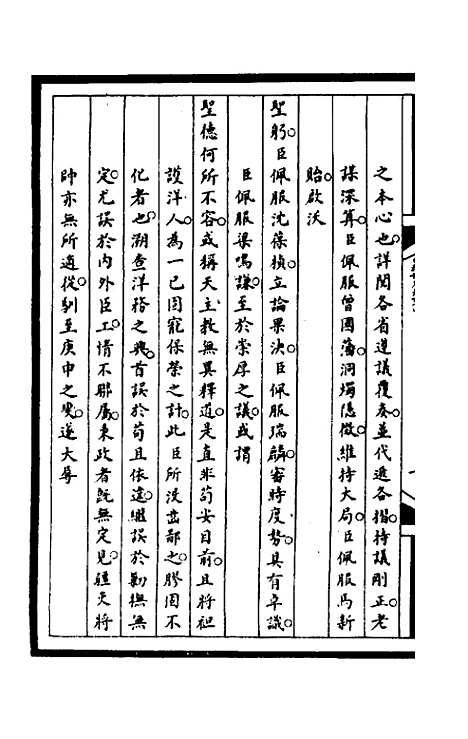 之本心也。詳閱各省遵議覆奏。並代遞各摺。持議剛正。老
謀深算。臣佩服曾國藩。洞燭隱微。維持大局。臣佩服馬新
貽。啟沃
聖躬。臣佩服沈葆楨。立論果決。臣佩服瑞麟。審時度勢。具有卓識。
臣佩服梁鳴謙。至於崇厚之議。或謂
聖德何所不容。或稱天主教無異釋道。是直非苟安目前。且將袒
護洋人。為一己固寵保榮之計。此臣所深蚩鄙之。膠固不
化者也。溯查洋務之興。首誤於苟且依違。繼誤於剿撫無
定。尤誤於內外臣工。情不聯屬。秉政者既無定見。疆吏將
帥亦無所適從。馴至庚申之變。遂大辱